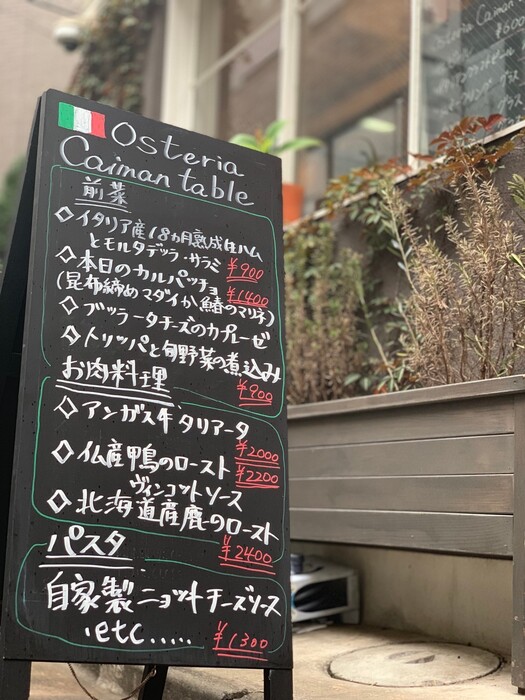 Osteria
Caiman table
前菜
◇イタリア産18ヵ月熟成生ハム
とモルタデッラ・サラミ ¥900
◇本日のカルパッチョ ¥1400
(昆布締めマダイか鰆のマリネ)
◇ブッラータチーズのカプレーゼ
◇トリッパと旬野菜の煮込み
¥900
お肉料理
◇アンガス牛タリアータ
¥2000
◇仏産鴨のロースト ¥2200
ヴィンコットソース
◇北海道産鹿のロースト
¥2400
パスタ
自家製ニョッキチーズソース
・etc.....
¥1300
Osteria Caiman